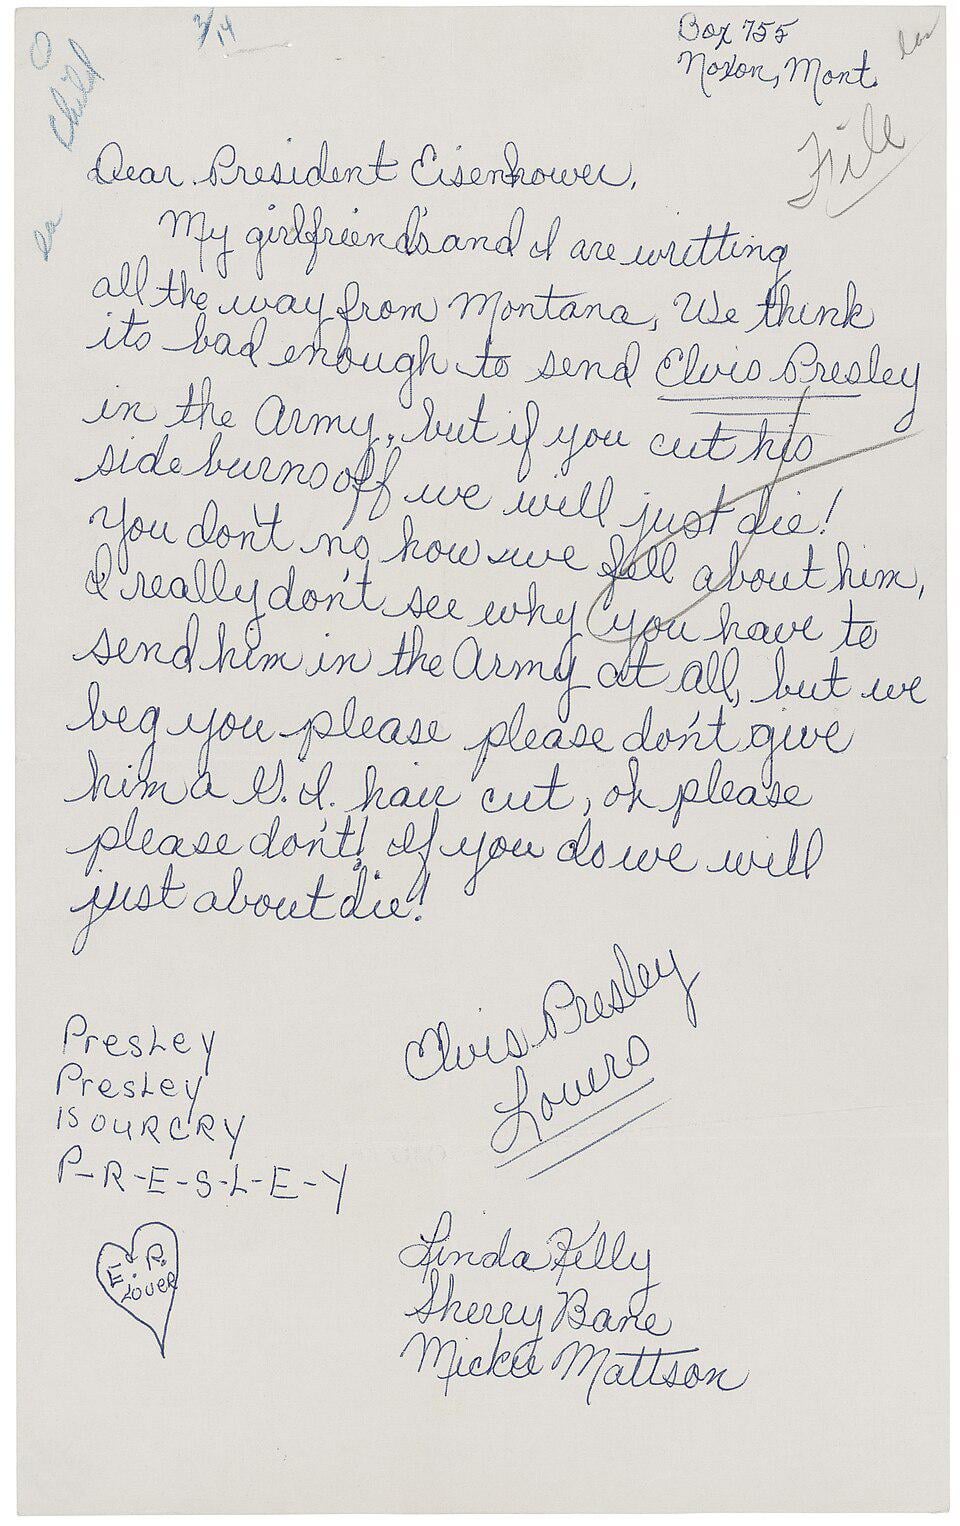 3/14
Box 755
Noxon, Mont.
Child
File
Dear President Eisenhower,
My girlfriend's and I are writting
all the way from Montana, We think
its bad enough to send Elvis Presley
in the Army, but if you cut his
side burns off we will just die!
You don't no how we fell about him,
I really don't see why you have to
send him in the Army at all, but we
beg you please please don't give
him a G.I. hair cut, oh please
please don't! If you do we will
just about die!
Elvis Presley
Lovers
Presley
Presley
IS OUR CRY
P-R-E-S-L-E-Y
E. P.
LOVER
Linda Kelly
Sherry Bane
Mickie Mattson